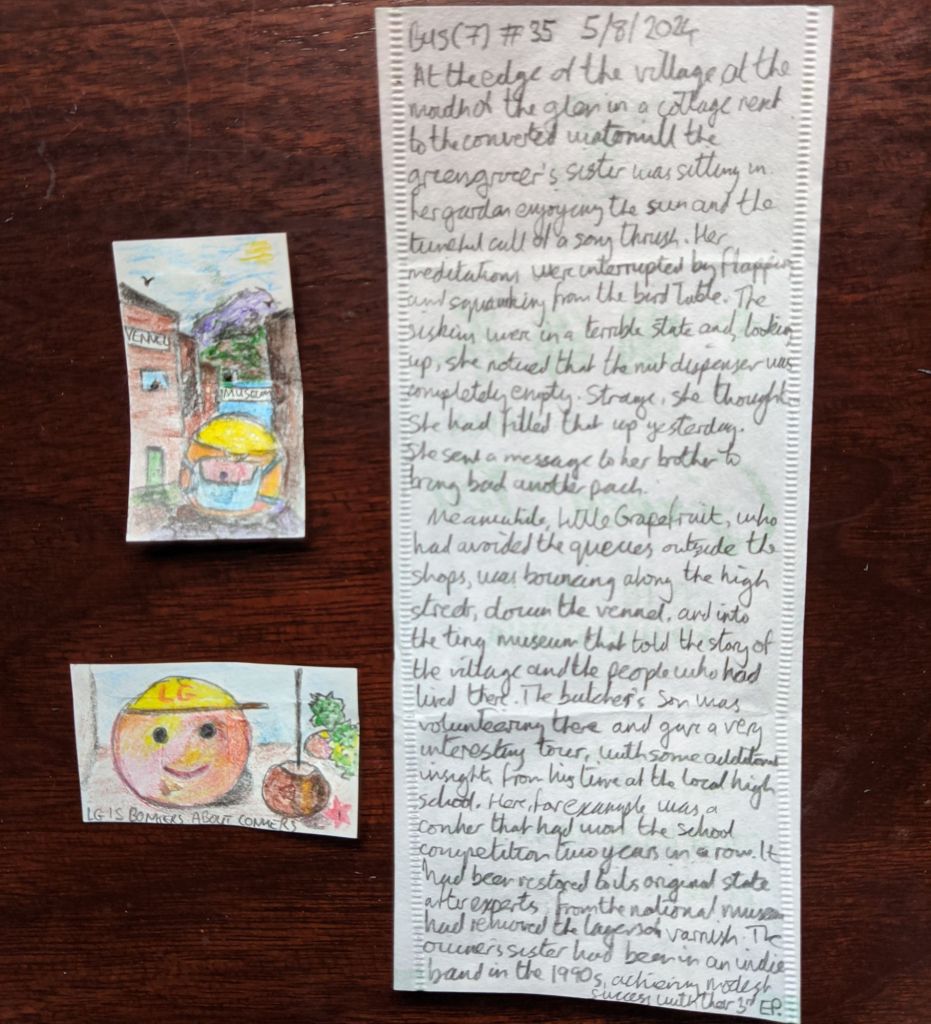 Bus(7) #35 5/8/2024
At the edge of the village at the
mouth of the glen in a cottage next
to the converted watermill the
greengrocer's sister was sitting in
her garden enjoying the sun and the
tuneful call of a song thrush. Her
meditations were interrupted by flapping
and squawking from the bird table. The
siskins were in a terrible state and, looking
up, she noticed that the nut dispenser was
completely empty. Strange, she thought.
She had filled that up yesterday.
She sent a message to her brother to
bring bad another pack.
Meanwhile, Little Grapefruit, who
had avoided the queues outside the
shops, was bouncing along the high
street, down the vennel, and into
the tiny museum that told the story of
the village and the people who had
lived there. The butcher's son was
volunteering there and gave a very
interesting tour, with some additional
insight from his time at the local high
school. Here, for example was a
conker that had won the school
competition two years in a row. It
had been restored to its original state
after experts from the national museum
had removed the layers of varnish. The
owner's sister had been in an indie
band in the 1990s, achieving modest
success with their 3rd EP.
VENNEL
MUSEUM
LG
LG IS BONKERS ABOUT CONKERS